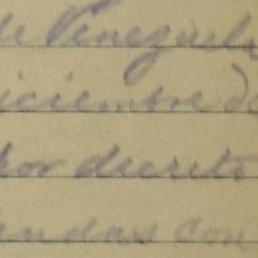 de Venezuela
iciembre de
por decreto
andas con